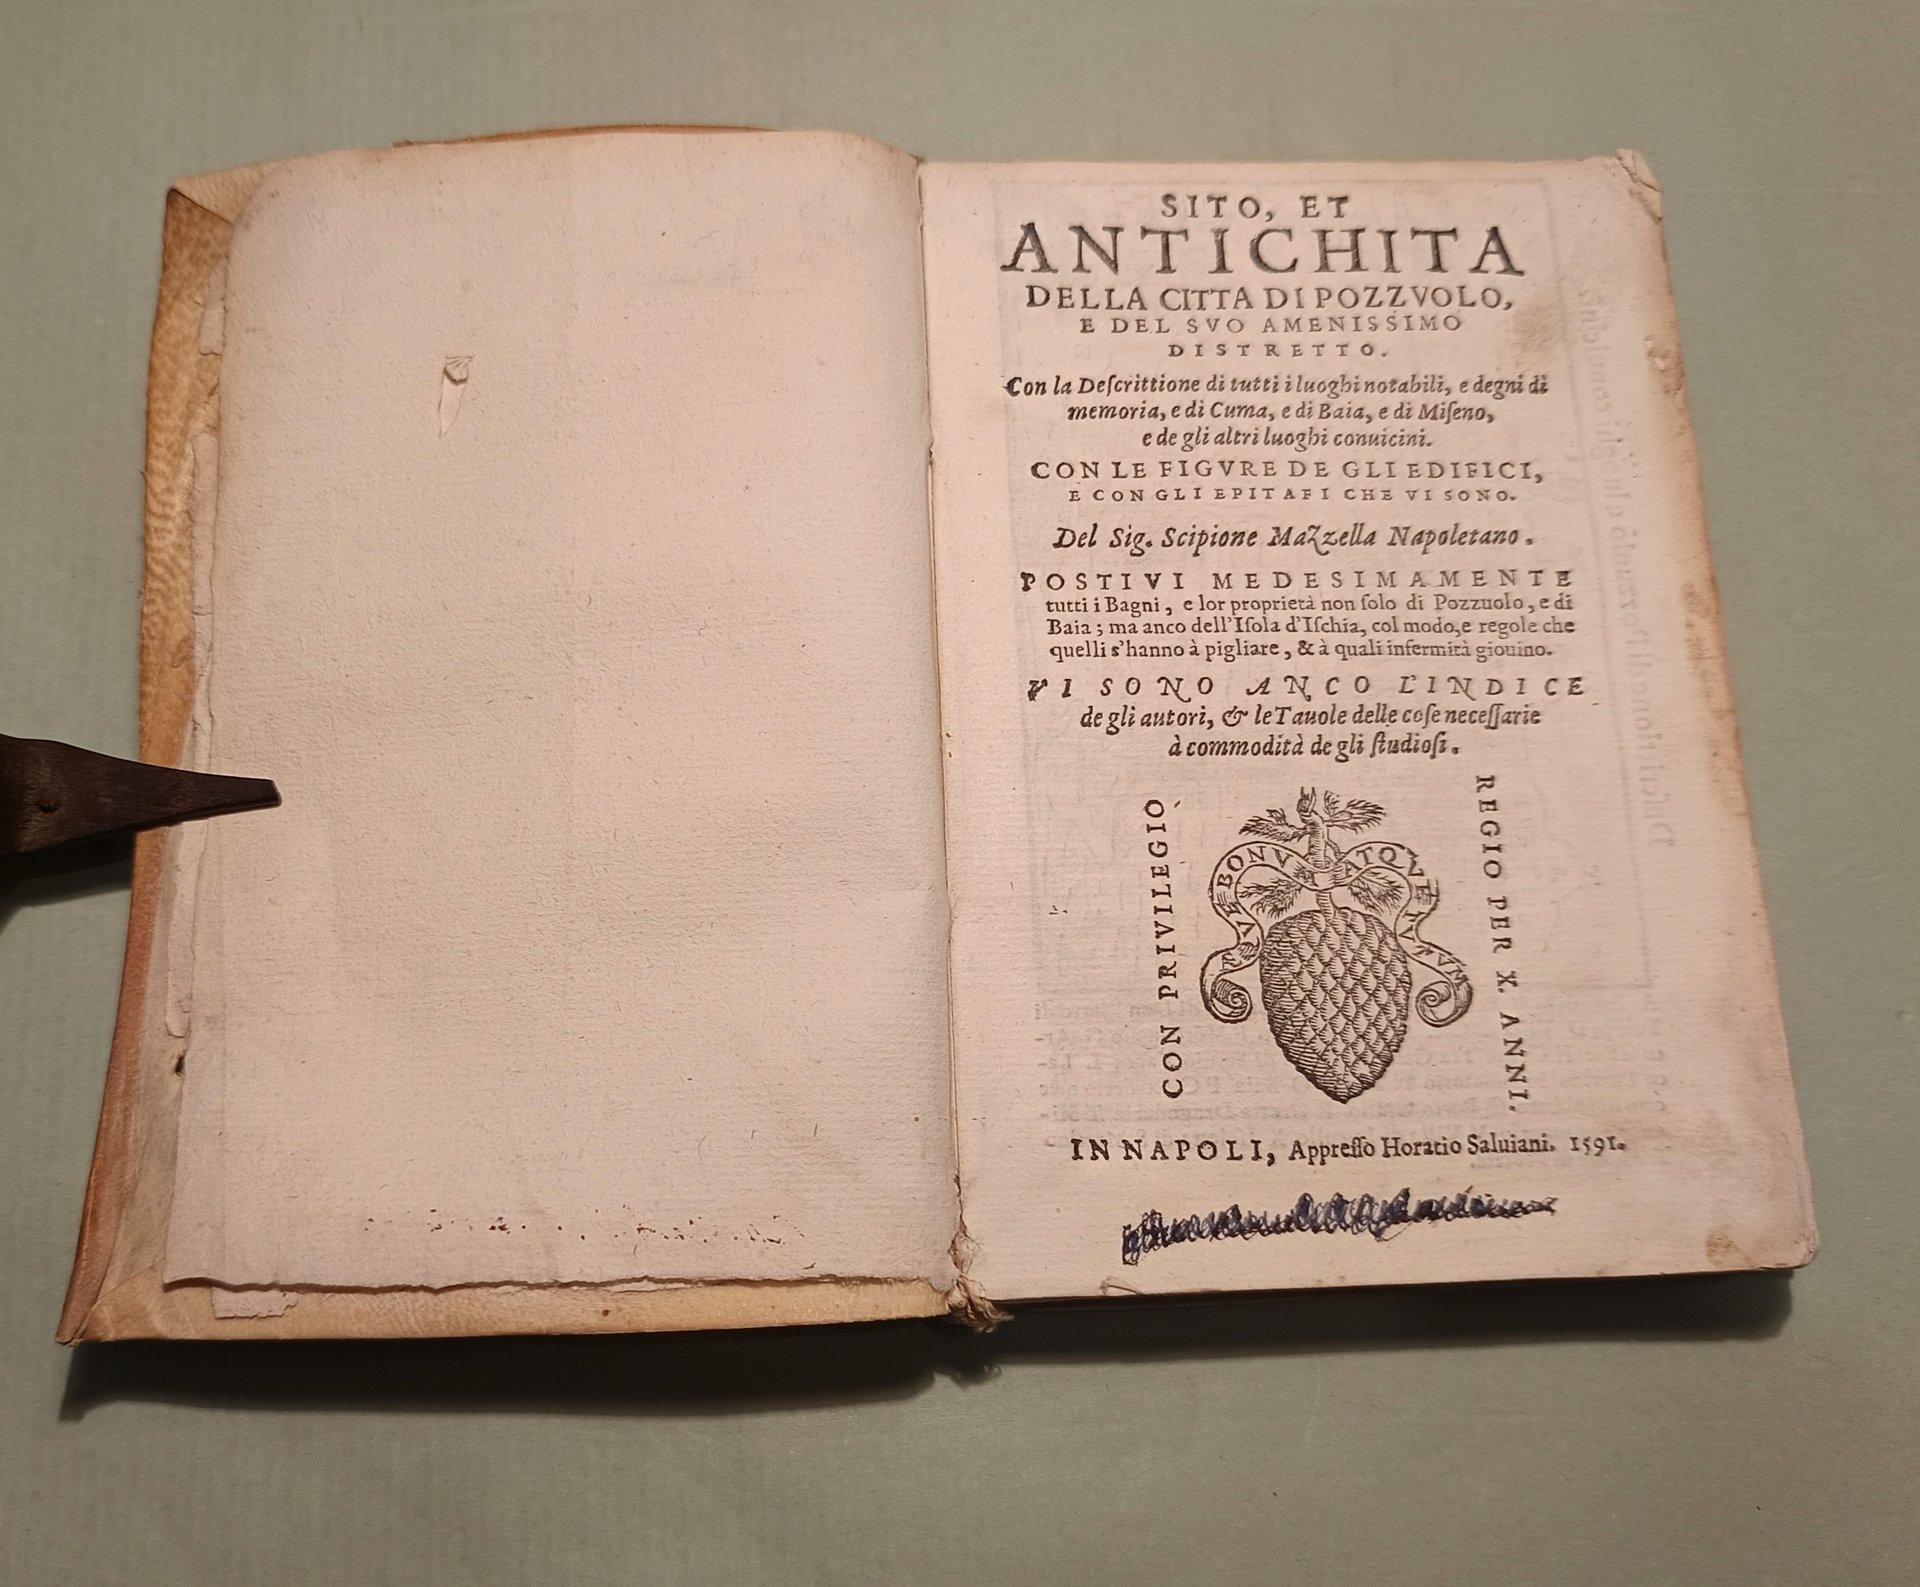 SITO, ET
ANTICHITA
DELLA CITTA DI POZZVOLO,
E DEL SVO AMENISSIMO
DISTRETTO.
Con la Deſcrittione di tutti i luoghi notabili, e degni di
memoria, e di Cuma, e di Baia, e di Miſeno,
e de gli altri luoghi conuicini.
CON LE FIGVRE DE GLI EDIFICI,
E CON GLI EPITAFI CHE VI SONO.
Del Sig. Scipione Mazzella Napoletano.
POSTIVI MEDESIMAMENTE
tutti i Bagni, e lor proprietà non ſolo di Pozzuolo, e di
Baia; ma anco dell'Iſola d'Iſchia, col modo, e regole che
quelli s'hanno à pigliare, & à quali infermità giouino.
VI SONO ANCO L'INDICE
de gli autori, & le Tauole delle coſe neceſſarie
à commodità de gli ſtudioſi.
CON PRIVILEGIO
ÆQVE BONV ATQVE TVTVM
REGIO PER X. ANNI.
IN NAPOLI, Appreſſo Horatio Saluiani. 1591.